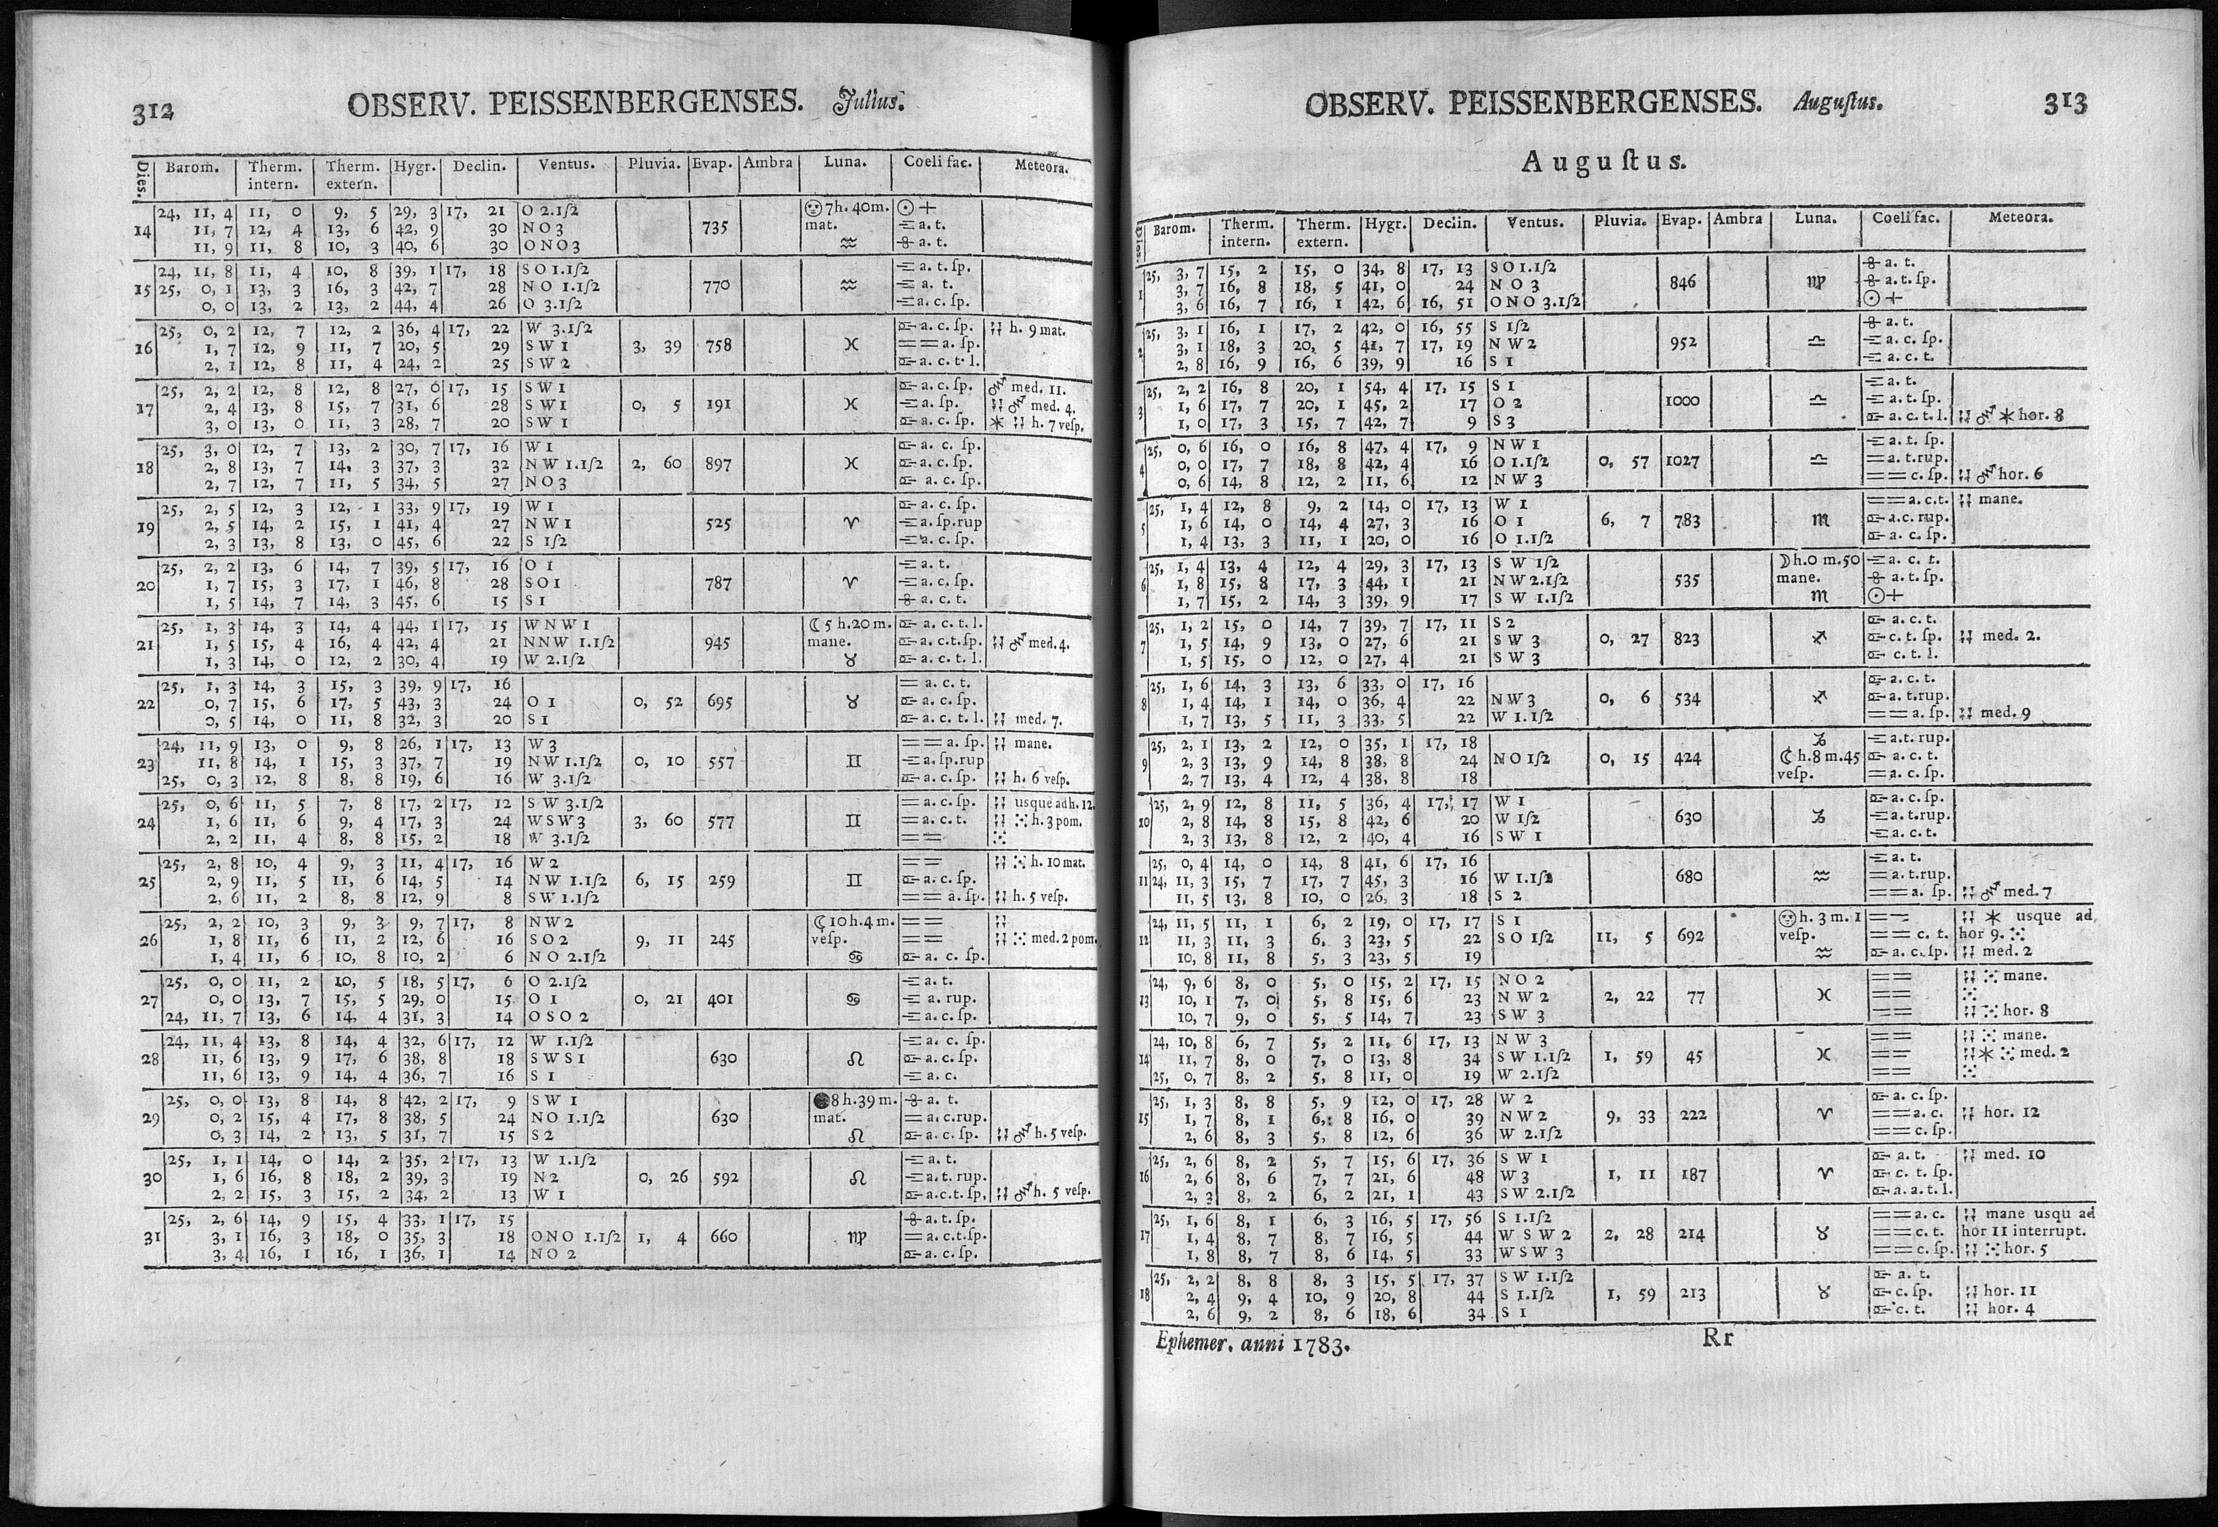 312 OBSERV. PEISSENBERGENSES. Julius.
Dies. Barom. Therm. intern. Therm. extern. Hygr. Declin. Ventus. Pluvia. Evap. Ambra Luna. Coeli fac. Meteora.
24, 11, 4 11, 0 9, 5 29, 3 17, 21 O 2.1ſ2 7h. 40m. ☉ +
14 11, 7 12, 4 13, 6 42, 9 30 N O 3 735 mat. a. t.
11, 9 11, 8 10, 3 40, 6 30 O N O 3 ♒ a. t.
24, 11, 8 11, 4 10, 8 39, 1 17, 18 S O 1.1ſ2 a. t. ſp.
15 25, 0, 1 13, 3 16, 3 42, 7 28 N O 1.1ſ2 770 ♒ a. t.
0, 0 13, 2 13, 2 44, 4 26 O 3.1ſ2 a. c. ſp.
25, 0, 2 12, 7 12, 2 36, 4 17, 22 W 3.1ſ2 a. c. ſp. h. 9 mat.
16 1, 7 12, 9 11, 7 20, 5 29 S W 1 3, 39 758 ♓ == a. ſp.
2, 1 12, 8 11, 4 24, 2 25 S W 2 a. c. t. l.
25, 2, 2 12, 8 12, 8 27, 6 17, 15 S W 1 a. c. ſp. med. 11.
17 2, 4 13, 8 15, 7 31, 6 28 S W 1 0, 5 191 ♓ a. ſp. med. 4.
3, 0 13, 0 11, 3 28, 7 20 S W 1 a. c. ſp. * h. 7 veſp.
25, 3, 0 12, 7 13, 2 30, 7 17, 16 W 1 a. c. ſp.
18 2, 8 13, 7 14, 3 37, 3 32 N W 1.1ſ2 2, 60 897 ♓ a. c. ſp.
2, 7 12, 7 11, 5 34, 5 27 N O 3 a. c. ſp.
25, 2, 5 12, 3 12, 1 33, 9 17, 19 W 1 a. c. ſp.
19 2, 5 14, 2 15, 1 41, 4 27 N W 1 525 ♈ a. ſp. rup
2, 3 13, 8 13, 0 45, 6 22 S 1ſ2 a. c. ſp.
25, 2, 2 13, 6 14, 7 39, 5 17, 16 O 1 a. t.
20 1, 7 15, 3 17, 1 46, 8 28 S O 1 787 ♈ a. c. ſp.
1, 5 14, 7 14, 3 45, 6 15 S 1 a. c. t.
25, 1, 3 14, 3 14, 4 44, 1 17, 15 W N W 1 ☾ 5 h. 20 m. a. c. t. l.
21 1, 5 15, 4 16, 4 42, 4 21 NNW 1.1ſ2 945 mane. a. c. t. ſp. med. 4.
1, 3 14, 0 12, 2 30, 4 19 W 2.1ſ2 ♉ a. c. t. l.
25, 1, 3 14, 3 15, 3 39, 9 17, 16 = a. c. t.
22 0, 7 15, 6 17, 5 43, 3 24 O 1 0, 52 695 ♉ a. c. ſp.
0, 5 14, 0 11, 8 32, 3 20 S 1 a. c. t. l. med. 7.
24, 11, 9 13, 0 9, 8 26, 1 17, 13 W 3 == a. ſp. mane.
23 11, 8 14, 1 15, 3 37, 7 19 N W 1.1ſ2 0, 10 557 ♊ a. ſp. rup
25, 0, 3 12, 8 8, 8 19, 6 16 W 3.1ſ2 a. c. ſp. h. 6 veſp.
25, 0, 6 11, 5 7, 8 17, 2 17, 12 S W 3.1ſ2 = a. c. ſp. usque ad h. 12.
24 1, 6 11, 6 9, 4 17, 3 24 W S W 3 3, 60 577 ♊ = a. c. t. h. 3 pom.
2, 2 11, 4 8, 8 15, 2 18 W 3.1ſ2 ==
25, 2, 8 10, 4 9, 3 11, 4 17, 16 W 2 == h. 10 mat.
25 2, 9 11, 5 11, 6 14, 5 14 NW 1.1ſ2 6, 15 259 ♊ a. c. ſp.
2, 6 11, 2 8, 8 12, 9 8 S W 1.1ſ2 == a. ſp. h. 5 veſp.
25, 2, 2 10, 3 9, 3 9, 7 17, 8 N W 2 10 h. 4 m. ==
26 1, 8 11, 6 11, 2 12, 6 16 S O 2 9, 11 245 veſp. == med. 2 pom.
1, 4 11, 6 10, 8 10, 2 6 N O 2.1ſ2 ♋ a. c. ſp.
25, 0, 0 11, 2 10, 5 18, 5 17, 6 O 2.1ſ2 a. t.
27 0, 0 13, 7 15, 5 29, 0 15 O 1 0, 21 401 ♋ a. rup.
24, 11, 7 13, 6 14, 4 31, 3 14 O S O 2 a. c. ſp.
24, 11, 4 13, 8 14, 4 32, 6 17, 12 W 1.1ſ2 a. c. ſp.
28 11, 6 13, 9 17, 6 38, 8 18 S W S 1 630 ♌ a. c. ſp.
11, 6 13, 9 14, 4 36, 7 16 S 1 a. c.
25, 0, 0 13, 8 14, 8 42, 2 17, 9 S W 1 8 h. 39 m. a. t.
29 0, 2 15, 4 17, 8 38, 5 24 NO 1.1ſ2 630 mat. = a. c. rup.
0, 3 14, 2 13, 5 31, 7 15 S 2 ♌ a. c. ſp. h. 5 veſp.
25, 1, 1 14, 0 14, 2 35, 2 17, 13 W 1.1ſ2 a. t.
30 1, 6 16, 8 18, 2 39, 3 19 N 2 0, 26 592 ♌ a. t. rup.
2, 2 15, 3 15, 2 34, 2 13 W 1 a. c. t. ſp. h. 5 veſp.
25, 2, 6 14, 9 15, 4 33, 1 17, 15 a. t. ſp.
31 3, 1 16, 3 18, 0 35, 3 18 ONO 1.1ſ2 1, 4 660 ♍ = a. c. t. ſp.
3, 4 16, 1 16, 1 36, 1 14 N O 2 a. c. ſp.
OBSERV. PEISSENBERGENSES. Auguſtus. 313
Auguſtus.
Dies. Barom. Therm. intern. Therm. extern. Hygr. Declin. Ventus. Pluvia. Evap. Ambra Luna. Coeli fac. Meteora.
25, 3, 7 15, 2 15, 0 34, 8 17, 13 S O 1.1ſ2 a. t.
1 3, 7 16, 8 18, 5 41, 0 24 N O 3 846 ♍ a. t. ſp.
3, 6 16, 7 16, 1 42, 6 16, 51 ONO 3.1ſ2 ☉ +
25, 3, 1 16, 1 17, 2 42, 0 16, 55 S 1ſ2 a. t.
2 3, 1 18, 3 20, 5 41, 7 17, 19 N W 2 952 ♎ a. c. ſp.
2, 8 16, 9 16, 6 39, 9 16 S 1 a. c. t.
25, 2, 2 16, 8 20, 1 54, 4 17, 15 S 1 a. t.
3 1, 6 17, 7 20, 1 45, 2 17 O 2 1000 ♎ a. t. ſp.
1, 0 17, 3 15, 7 42, 7 9 S 3 a. c. t. l. * hor. 8
25, 0, 6 16, 0 16, 8 47, 4 17, 9 N W 1 a. t. ſp.
4 0, 0 17, 7 18, 8 42, 4 16 O 1.1ſ2 0, 57 1027 ♎ = a. t. rup.
0, 6 14, 8 12, 2 11, 6 12 N W 3 == c. ſp. hor. 6
25, 1, 4 12, 8 9, 2 14, 0 17, 13 W 1 == a. c. t. mane.
5 1, 6 14, 0 14, 4 27, 3 16 O 1 6, 7 783 ♏ a. c. rup.
1, 4 13, 3 11, 1 20, 0 16 O 1.1ſ2 a. c. ſp.
25, 1, 4 13, 4 12, 4 29, 3 17, 13 S W 1ſ2 ☽ h. 0 m. 50 a. c. t.
6 1, 8 15, 8 17, 3 44, 1 21 N W 2.1ſ2 535 mane. a. t. ſp.
1, 7 15, 2 14, 3 39, 9 17 S W 1.1ſ2 ♏ ☉+
25, 1, 2 15, 0 14, 7 39, 7 17, 11 S 2 a. c. t.
7 1, 5 14, 9 13, 0 27, 6 21 S W 3 0, 27 823 ♐ c. t. ſp. med. 2.
1, 5 15, 0 12, 0 27, 4 21 S W 3 c. t. l.
25, 1, 6 14, 3 13, 6 33, 0 17, 16 a. c. t.
8 1, 4 14, 1 14, 0 36, 4 22 N W 3 0, 6 534 ♐ a. t. rup.
1, 7 13, 5 11, 3 33, 5 22 W 1.1ſ2 == a. ſp. med. 9
25, 2, 1 13, 2 12, 0 35, 1 17, 18 ♑ a. t. rup.
9 2, 3 13, 9 14, 8 38, 8 24 N O 1ſ2 0, 15 424 h. 8 m. 45 a. c. t.
2, 7 13, 4 12, 4 38, 8 18 veſp. = a. c. ſp.
25, 2, 9 12, 8 11, 5 36, 4 17, 17 W 1 a. c. ſp.
10 2, 8 14, 8 15, 8 42, 6 20 W 1ſ2 630 ♑ a. t. rup.
2, 3 13, 8 12, 2 40, 4 16 S W 1 a. c. t.
25, 0, 4 14, 0 14, 8 41, 6 17, 16 a. t.
11 24, 11, 3 15, 7 17, 7 45, 3 16 W 1.1ſ2 680 ♒ = a. t. rup.
11, 5 13, 8 10, 0 26, 3 18 S 2 == a. ſp. med. 7
24, 11, 5 11, 1 6, 2 19, 0 17, 17 S 1 h. 3 m. 1 == * usque ad
12 11, 3 11, 3 6, 3 23, 5 22 S O 1ſ2 11, 5 692 veſp. == c. t. hor 9.
10, 8 11, 8 5, 3 23, 5 19 ♒ a. c. ſp. med. 2
24, 9, 6 8, 0 5, 0 15, 2 17, 15 N O 2 == mane.
13 10, 1 7, 0 5, 8 15, 6 23 N W 2 2, 22 77 ♓ ==
10, 7 9, 0 5, 5 14, 7 23 S W 3 == hor. 8
24, 10, 8 6, 7 5, 2 11, 6 17, 13 N W 3 == mane.
14 11, 7 8, 0 7, 0 13, 8 34 S W 1.1ſ2 1, 59 45 ♓ == * med. 2
25, 0, 7 8, 2 5, 8 11, 0 19 W 2.1ſ2 ==
25, 1, 3 8, 8 5, 9 12, 0 17, 28 W 2 a. c. ſp.
15 1, 7 8, 1 6, 8 16, 0 39 N W 2 9, 33 222 ♈ == a. c. hor. 12
2, 6 8, 3 5, 8 12, 6 36 W 2.1ſ2 == c. ſp.
25, 2, 6 8, 2 5, 7 15, 6 17, 36 S W 1 a. t. med. 10
16 2, 6 8, 6 7, 7 21, 6 48 W 3 1, 11 187 ♈ c. t. ſp.
2, 3 8, 2 6, 2 21, 1 43 S W 2.1ſ2 a. a. t. l.
25, 1, 6 8, 1 6, 3 16, 5 17, 56 S 1.1ſ2 == a. c. mane usqu ad
17 1, 4 8, 7 8, 7 16, 5 44 W S W 2 2, 28 214 ♉ == c. t. hor 11 interrupt.
1, 8 8, 7 8, 6 14, 5 33 W S W 3 == c. ſp. hor. 5
25, 2, 2 8, 8 8, 3 15, 5 17, 37 S W 1.1ſ2 a. t.
18 2, 4 9, 4 10, 9 20, 8 44 S 1.1ſ2 1, 59 213 ♉ c. ſp. hor. 11
2, 6 9, 2 8, 6 18, 6 34 S 1 c. t. hor. 4
Ephemer. anni 1783. Rr